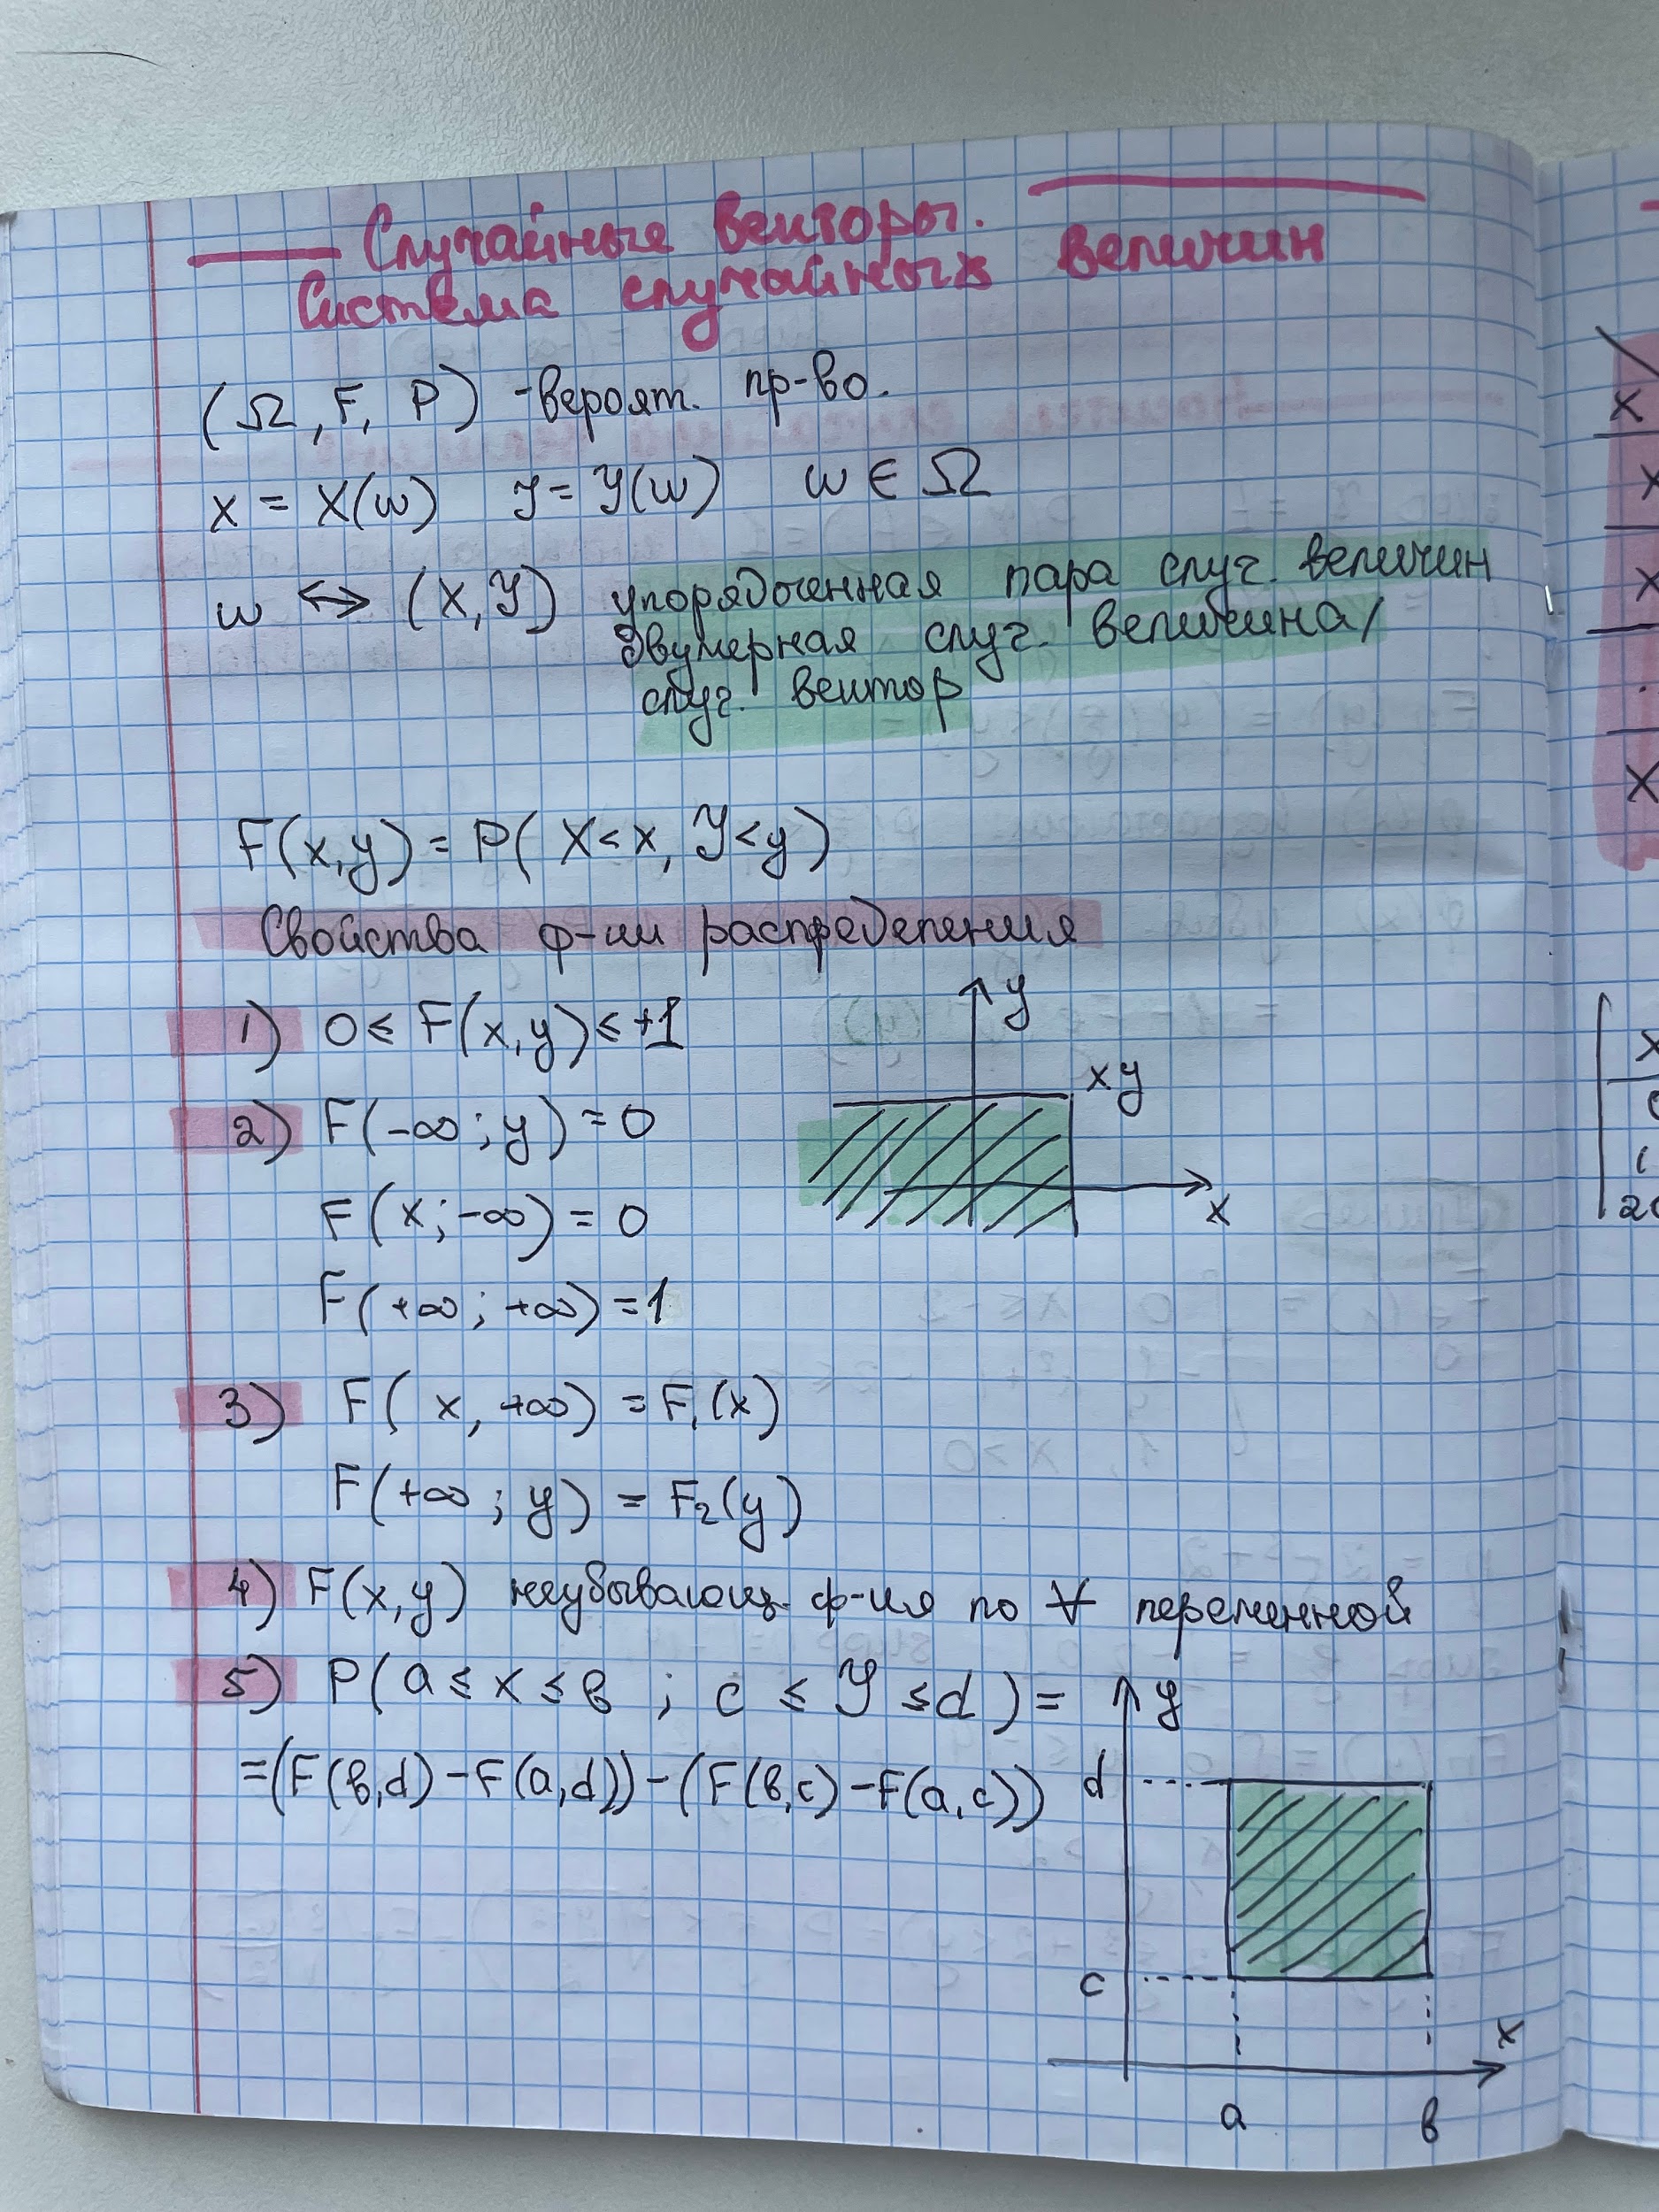 Случайные векторы.
Система случайных величин
(Ω, F, P) - вероят. пр-во.
x = X(ω) y = Y(ω) ω ∈ Ω
ω ↔ (X, Y) упорядоченная пара случ. величин
двумерная случ. величина/
случ. вектор
F(x,y) = P( X < x, Y < y)
Свойства ф-ии распределения
1) 0 ≤ F(x,y) ≤ +1
y
xy
x
2) F(-∞; y) = 0
F(x; -∞) = 0
F(+∞; +∞) = 1
3) F( x, +∞) = F₁(x)
F(+∞; y) = F₂(y)
4) F(x,y) неубывающ. ф-ия по ∀ переменной
5) P( a ≤ x ≤ в ; c ≤ Y ≤ d ) =
= (F(в,d) - F(a,d)) - (F(в,c) - F(a,c))
y
d
c
x
a в
x
x
x
.
x
x
0
1
20